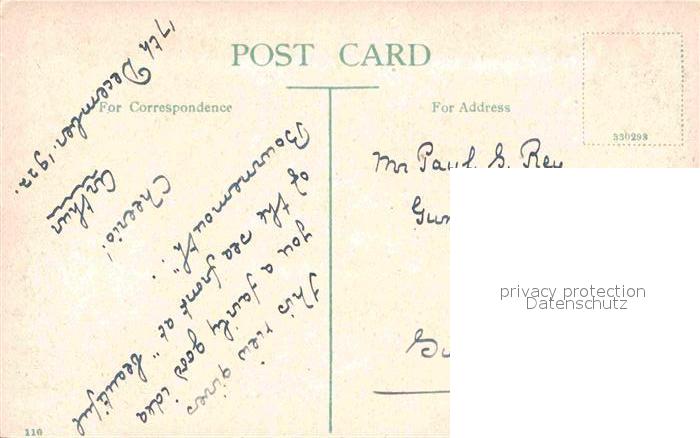 POST CARD
For Correspondence
For Address
330293
17th December. 1922.
This view gives
you a fairly good idea
of the sea front at "beautiful
Bournemouth".
Cheerio!
Arthur
Mr Paul G. Rey
privacy protection
Datenschutz
110